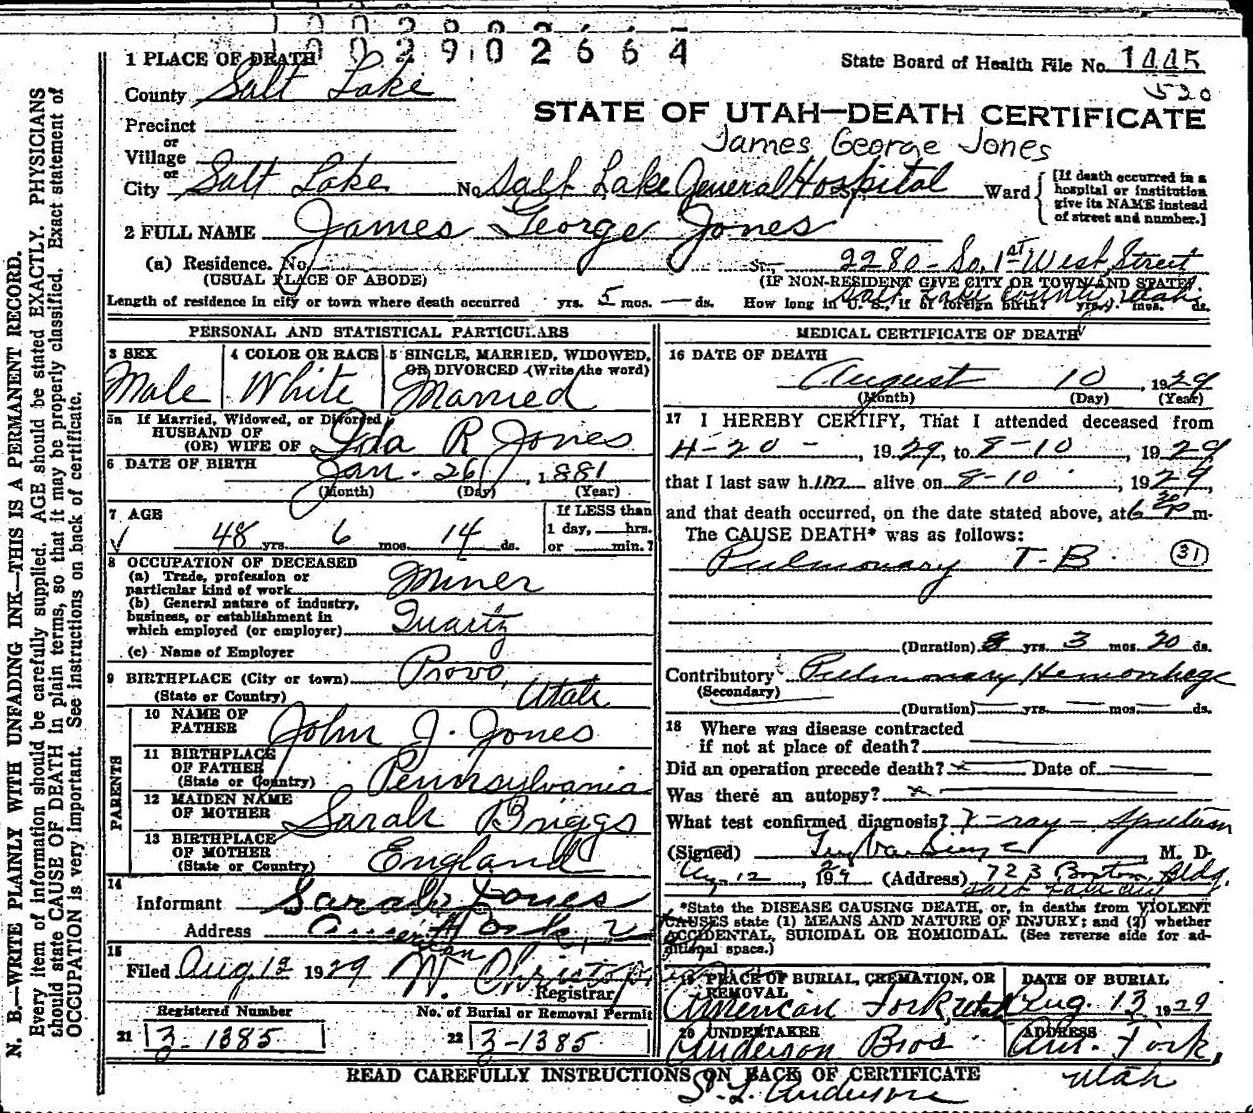 1002902664
1 PLACE OF DEATH
State Board of Health File No. 1445
County Salt Lake
520
STATE OF UTAH—DEATH CERTIFICATE
Precinct
or
James George Jones
Village
or
City Salt Lake No. Salt Lake General Hospital St., Ward
[If death occurred in a hospital or institution give its NAME instead of street and number.]
2 FULL NAME James George Jones
(a) Residence. No. St. 2280 - So. 1st West Street
(USUAL PLACE OF ABODE) (IF NON-RESIDENT GIVE CITY OR TOWN AND STATE)
Salt Lake County, Utah
Length of residence in city or town where death occurred yrs. 5 mos. — ds. How long in U. S., if of foreign birth? yrs. mos. ds.
PERSONAL AND STATISTICAL PARTICULARS
3 SEX Male
4 COLOR OR RACE White
5 SINGLE, MARRIED, WIDOWED, OR DIVORCED (Write the word) Married
5a If Married, Widowed, or Divorced
HUSBAND OF
(OR) WIFE OF Ida R Jones
6 DATE OF BIRTH Jan. 26, 1881
(Month) (Day) (Year)
7 AGE 48 yrs. 6 mos. 14 ds.
If LESS than 1 day, hrs. or min.?
8 OCCUPATION OF DECEASED
(a) Trade, profession or particular kind of work Miner
(b) General nature of industry, business, or establishment in which employed (or employer) Quartz
(c) Name of Employer
9 BIRTHPLACE (City or town) Provo,
(State or Country) Utah
PARENTS
10 NAME OF FATHER John J. Jones
11 BIRTHPLACE OF FATHER (State or Country) Pennsylvania
12 MAIDEN NAME OF MOTHER Sarah Briggs
13 BIRTHPLACE OF MOTHER (State or Country) England
14
Informant Sarah Jones
Address American Fork,
15
Filed Aug 12 1929 W. Christop
Registrar
Registered Number
21 3-1385
No. of Burial or Removal Permit
22 3-1385
MEDICAL CERTIFICATE OF DEATH
16 DATE OF DEATH
August 10, 1929
(Month) (Day) (Year)
17 I HEREBY CERTIFY, That I attended deceased from
4-20-, 1929, to 8-10, 1929
that I last saw him alive on 8-10, 1929,
and that death occurred, on the date stated above, at 6 30 P m.
The CAUSE DEATH* was as follows:
Pulmonary T-B. 31
(Duration) 8 yrs. 3 mos. 20 ds.
Contributory Pulmonary Hemorrhage
(Secondary)
(Duration) — yrs. — mos. — ds.
18 Where was disease contracted
if not at place of death?
Did an operation precede death? x Date of —
Was there an autopsy? x
What test confirmed diagnosis? X-ray - Sputum
(Signed) M. D.
Aug. 12, 1929 (Address) 723 Boston Bldg.
Salt Lake City
*State the DISEASE CAUSING DEATH, or, in deaths from VIOLENT
CAUSES state (1) MEANS AND NATURE OF INJURY; and (2) whether
ACCIDENTAL, SUICIDAL OR HOMICIDAL. (See reverse side for ad-
ditional space.)
19 PLACE OF BURIAL, CREMATION, OR REMOVAL
American Fork, Utah
DATE OF BURIAL
Aug. 13, 1929
20 UNDERTAKER
Anderson Bros.
ADDRESS
Am. Fork,
Utah
READ CAREFULLY INSTRUCTIONS ON BACK OF CERTIFICATE
S. L. Anderson
N. B.—WRITE PLAINLY WITH UNFADING INK—THIS IS A PERMANENT RECORD.
Every item of information should be carefully supplied. AGE should be stated EXACTLY. PHYSICIANS
should state CAUSE OF DEATH in plain terms, so that it may be properly classified. Exact statement of
OCCUPATION is very important. See instructions on back of certificate.